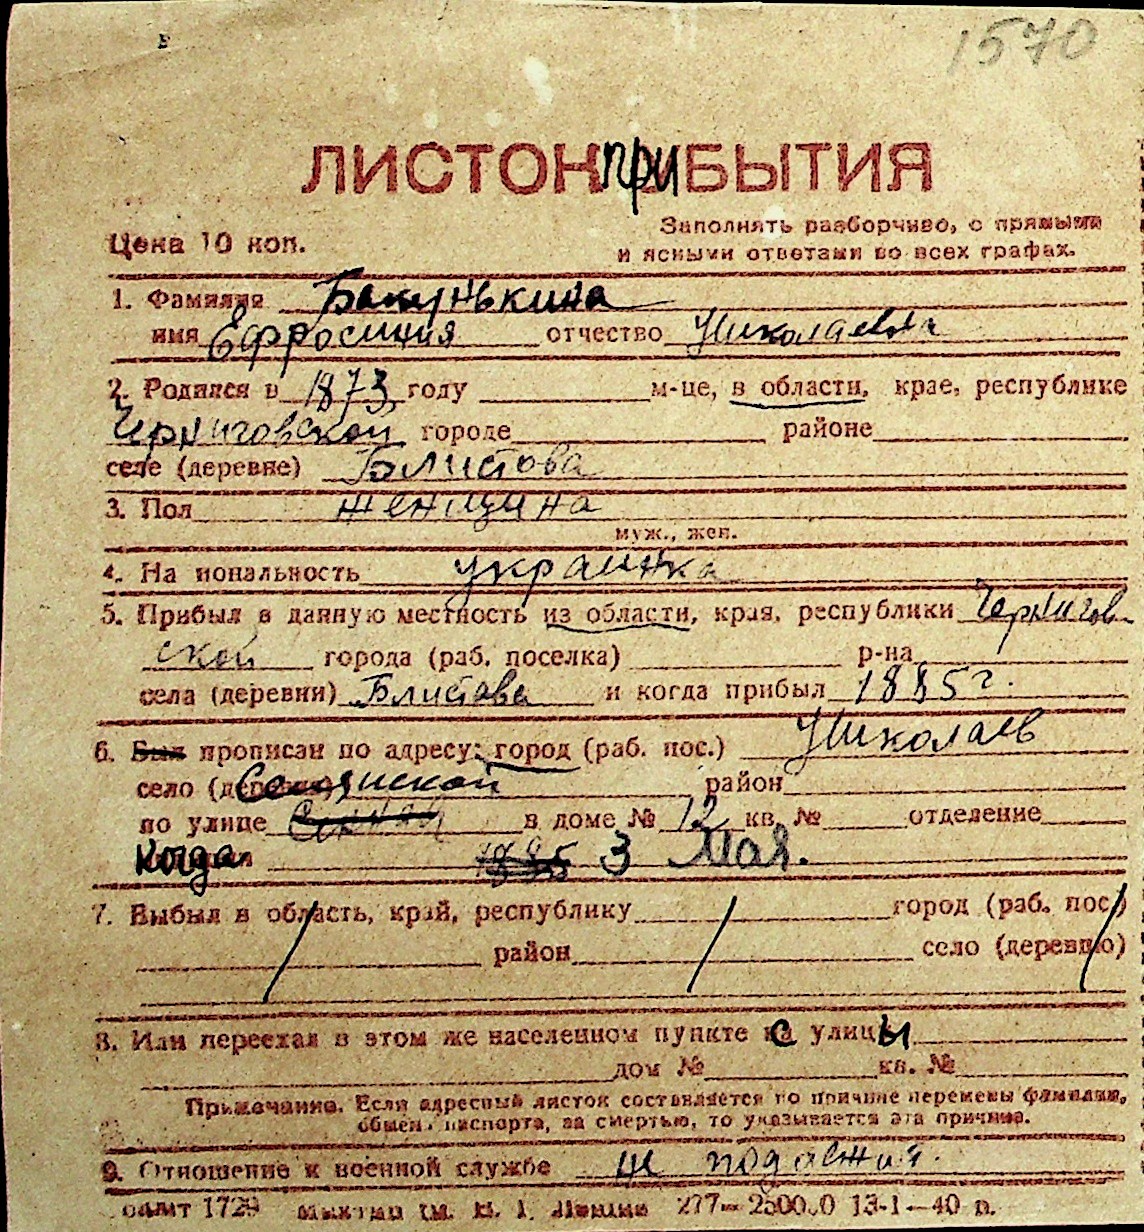 1570
ЛИСТОК ПРИБЫТИЯ
Цена 10 коп.
Заполнять разборчиво, с прямыми
и ясными ответами во всех графах.
1. Фамилия Бакунькина
имя Ефросиния отчество Николаевна
2. Родился в 1873 году м-це, в области, крае, республике
Черниговской городе районе
селе (деревне) Блистова
3. Пол женщина
муж., жен.
4. На иональность украинка
5. Прибыл в данную местность из области, края, республики Чернигов
ской города (раб. поселка) р-на
села (деревни) Блистова и когда прибыл 1885 г.
6. Был прописан по адресу: город (раб. пос.) Николаев
село район
по улице в доме № 12 кв. № отделение
когда 3 Мая.
7. Выбыл в область, край, республику город (раб. пос.)
район село (деревню)
8. Или переехал в этом же населенном пункте с улицы
дом № кв. №
Примечание. Если адресный листок составляется по причине перемены фамилии,
обмен паспорта, за смертью, то указывается эта причина.
9. Отношение к военной службе не
1729 277— 13-1—40 п.